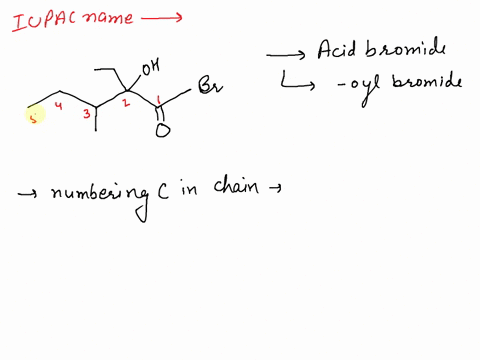 IUPAC name →
→ Acid bromide
↳ -oyl bromide
OH
Br
5 4 3 2 1
O
→ numbering C in chain →